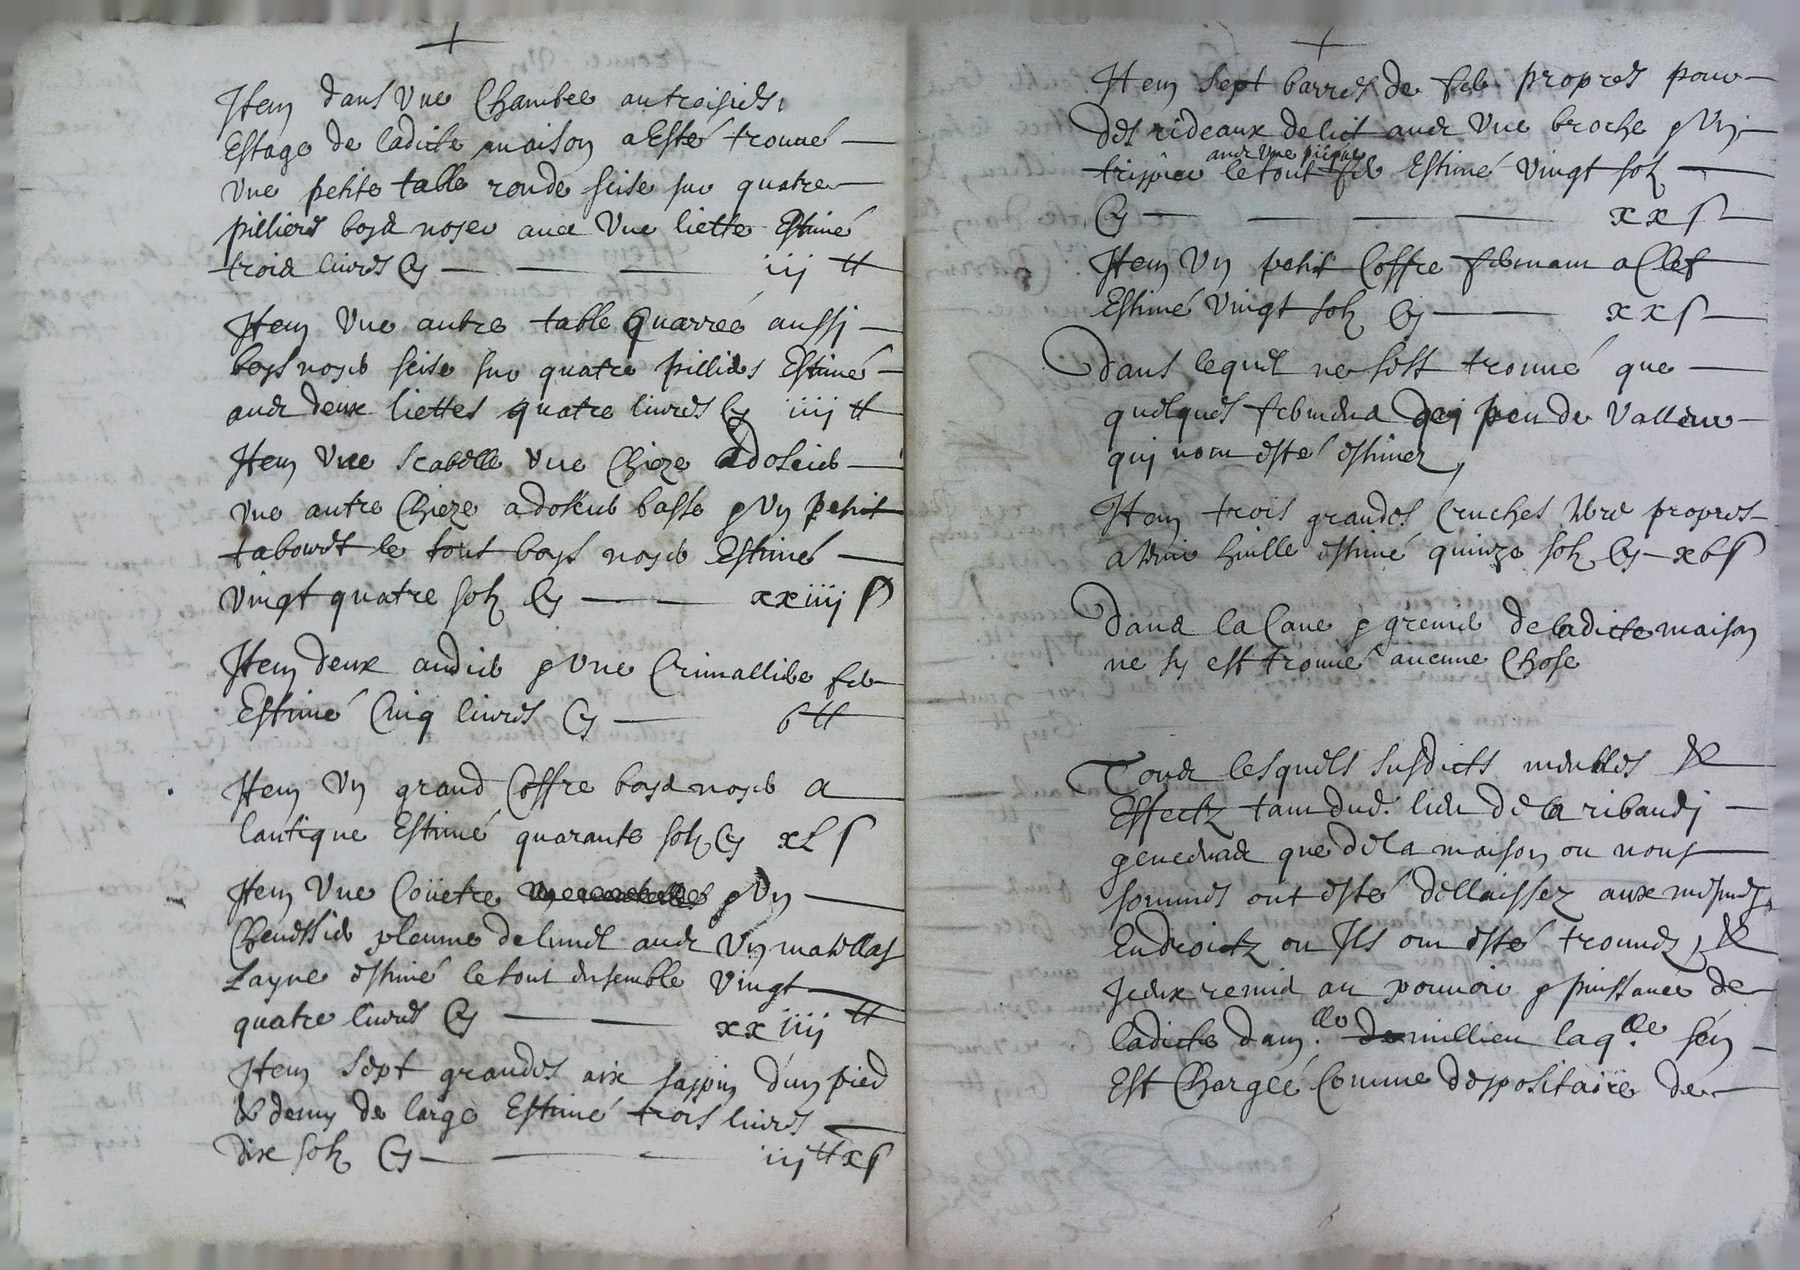 Item dans Une Chambre au troisies.
Estage de ladicte maison a Esté trouué
Une petite table ronde seise sur quatre
pilliers boys noyer auec Une liette Estimé
trois liures Cy iij ₶
Item Une autre table quarrée aussj
boys noyer seise sur quatre pilliers Estimé
auec deux liettes quatre liures Cy iiij ₶
Item Une scabelle Une Chieze a dosier
Une autre Chieze a dosier basse & Un petit
tabouret le tout boys noyer Estimé
Vingt quatre solz Cy xxiiij s
Item deux andier & Une Crimalliere fer
Estimé Cinq liures Cy v ₶
Item Un grand Coffre boys noyer a
lantique Estimé quarante solz Cy xL s
Item Une Coüetre & Un
Cheuessier pleume de auec Un matellas
Layne estimé le tout ensemble Vingt
quatre liures Cy xxiiij ₶
Item Sept grandes aix sappin d'un pied
& demy de large Estimé trois liures
dix solz Cy iij ₶ x s
Item Sept barres de fer propres pour
des rideaux de lict auec Une broche & Un
auec Une
trippier le tout fer Estimé Vingt solz
Cy xx s
Item Un petit Coffre fermam a Clef
Estimé Vingt solz Cy xx s
Dans lequel ne sest trouué que
quelques peu de Valleur
quj nom esté estimez,
Item trois grandes Cruches terre propres
a tenir huille estimé quinze solz Cy xv s
Dans la Caue & grenier de ladicte maison
ne sy est trouué aucune Chose
Tous lesquels susdicts meubles &
Effectz tam dud. lieu de la ribaudj
que de la maison ou nous
sommes ont esté dellaissez aux mesmes
Endroictz ou Ils om esté trouues, &
Iceux remis au pouuoir & puissance de
ladicte dam.lle millieu laq.lle sen
Est Chargée Comme deppositaire de